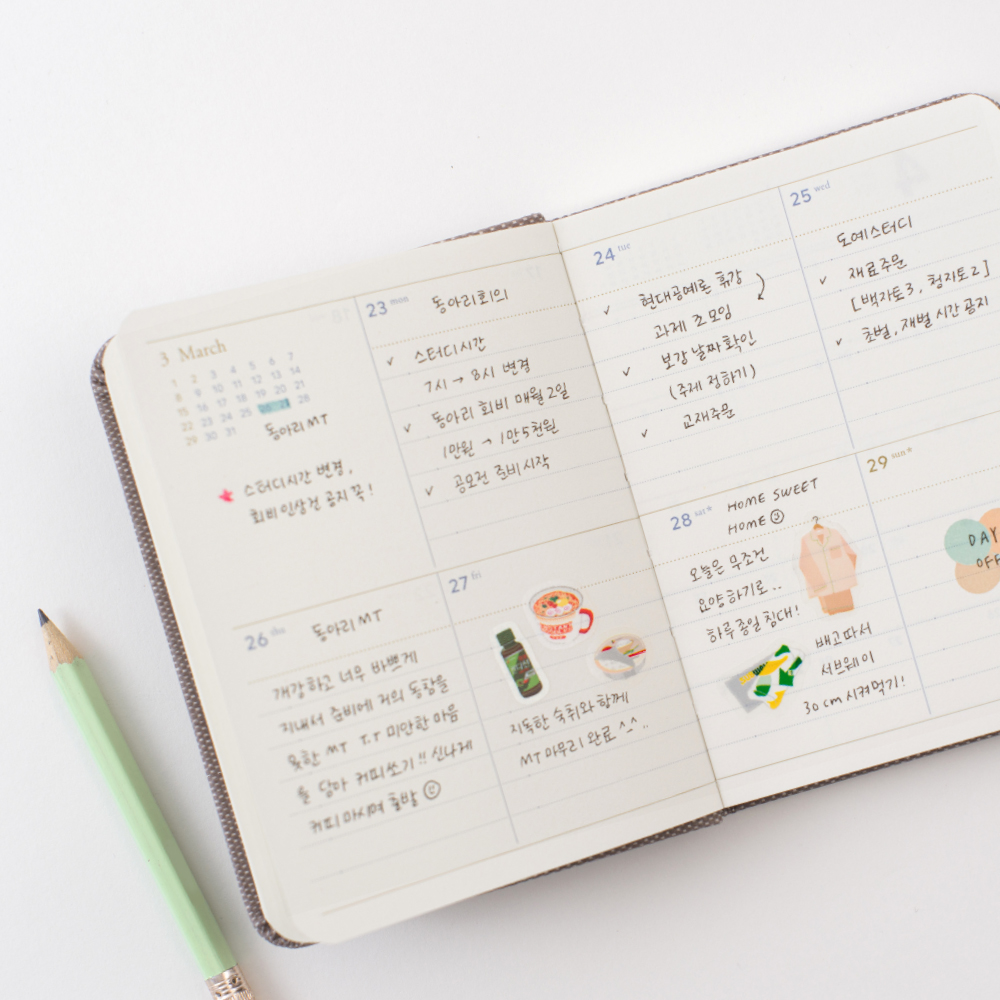 3 March
1 2 3 4 5 6 7
8 9 10 11 12 13 14
15 16 17 18 19 20 21
22 23 24 25 28
29 30 31
동아리 MT
스터디시간 변경,
회비인상건 공지 꼭!
23 mon
동아리회의
✓ 스터디시간
7시 → 8시 변경
✓ 동아리 회비 매월 2일
1만원 → 1만5천원
✓ 공모전 준비시작
24 tue
✓ 현대공예론 휴강
과제 조모임
✓ 보강 날짜 확인
(주제 정하기)
✓ 교재주문
25 wed
도예스터디
✓ 재료주문
[백자토3, 청자토2]
✓ 초벌, 재벌 시간 공지
26 thu
동아리 MT
개강하고 너무 바쁘게
지내서 준비에 저의 동참을
못한 MT T.T 미안한 마음
을 담아 커피쏘기!! 신나게
커피 마시며 출발
27 fri
지독한 숙취와 함께
MT 마무리 완료 ^^..
28 sat
HOME SWEET
HOME
오늘은 무조건
요양하기로..
하루종일 침대!
배고파서
서브웨이
30cm 시켜먹기!
29 sun
DAY
OFF